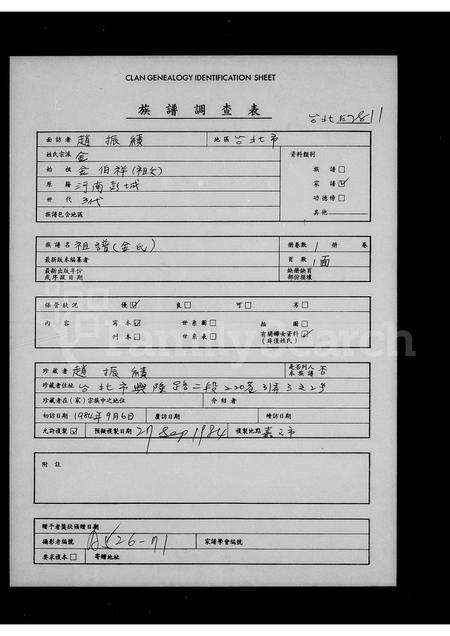 CLAN GENEALOGY IDENTIFICATION SHEET
族譜調查表
台北 2811
面訪者 趙振績 地區 台北市
姓氏宗派 金 資料類別
始祖 金伯祥(祖父) 族譜□
原籍 河南彭城 家譜☑
世代 3代 功德榜□
族譜包含地區 其他
族譜名 祖譜(金氏) 冊卷數 1 冊 卷
最新版本編纂者 頁數 1面
最新出版年份或序跋日期 缺冊缺頁部份損壞
保管狀況 優☑ 良□ 可□ 男□
內容 寫本☑ 世系圖□ 拍圖□
刊本□ 世系表□ 有關婦女資料☑ (非僅姓氏)
珍藏者 趙振績 是否列入本族譜 否
珍藏者住址 台北市興隆路二段220巷31弄3之2号
珍藏者在(家)宗族中之地位 介紹者
初訪日期 1984年9月6日 覆訪日期 續訪日期
允許複製☑ 預擬複製日期 27 Sep 1984 複製地點 嘉之市
附註
贈予者獎狀頒贈日期
攝影者編號 A526-71 家譜學會編號
要求複本□ 寄贈地址
FamilySearch